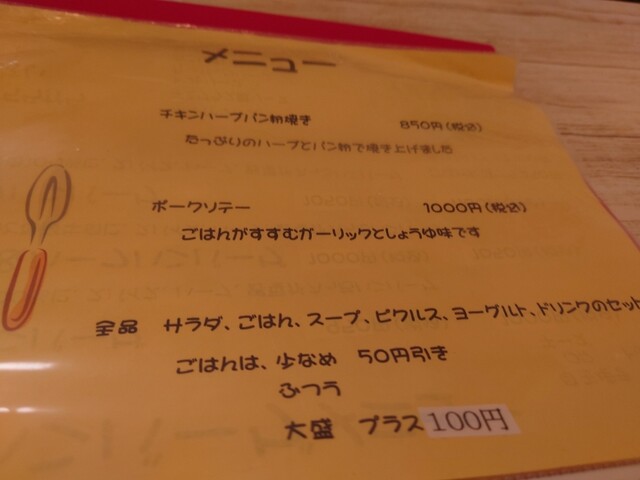 メニュー
チキンハーブパン粉焼き 850円(税込)
たっぷりのハーブとパン粉で焼き上げました
ポークソテー 1000円(税込)
ごはんがすすむガーリックとしょうゆ味です
全品 サラダ、ごはん、スープ、ピクルス、ヨーグルト、ドリンクのセット
ごはんは、少なめ 50円引き
ふつう
大盛 プラス100円